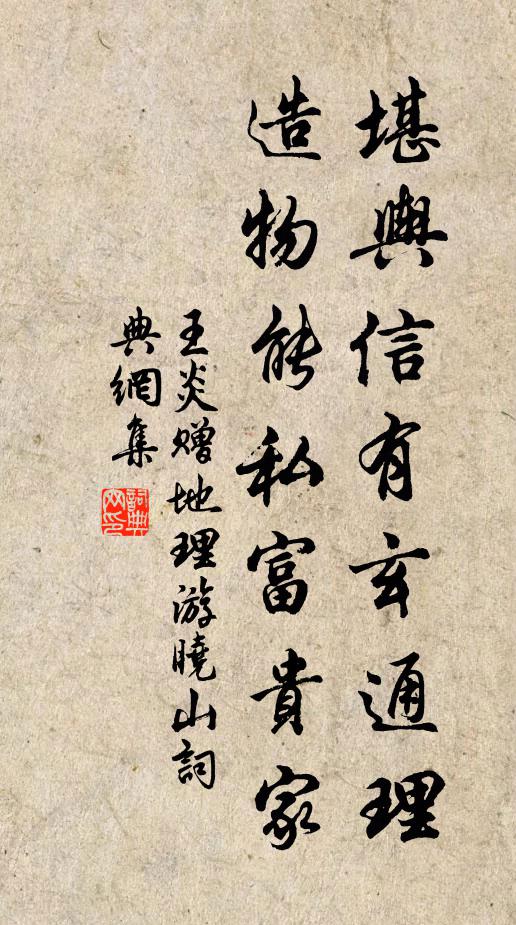 堪輿信有玄通理
造物能私富貴家
王炎赠地理游曉山詞
典網集
詞典
网印